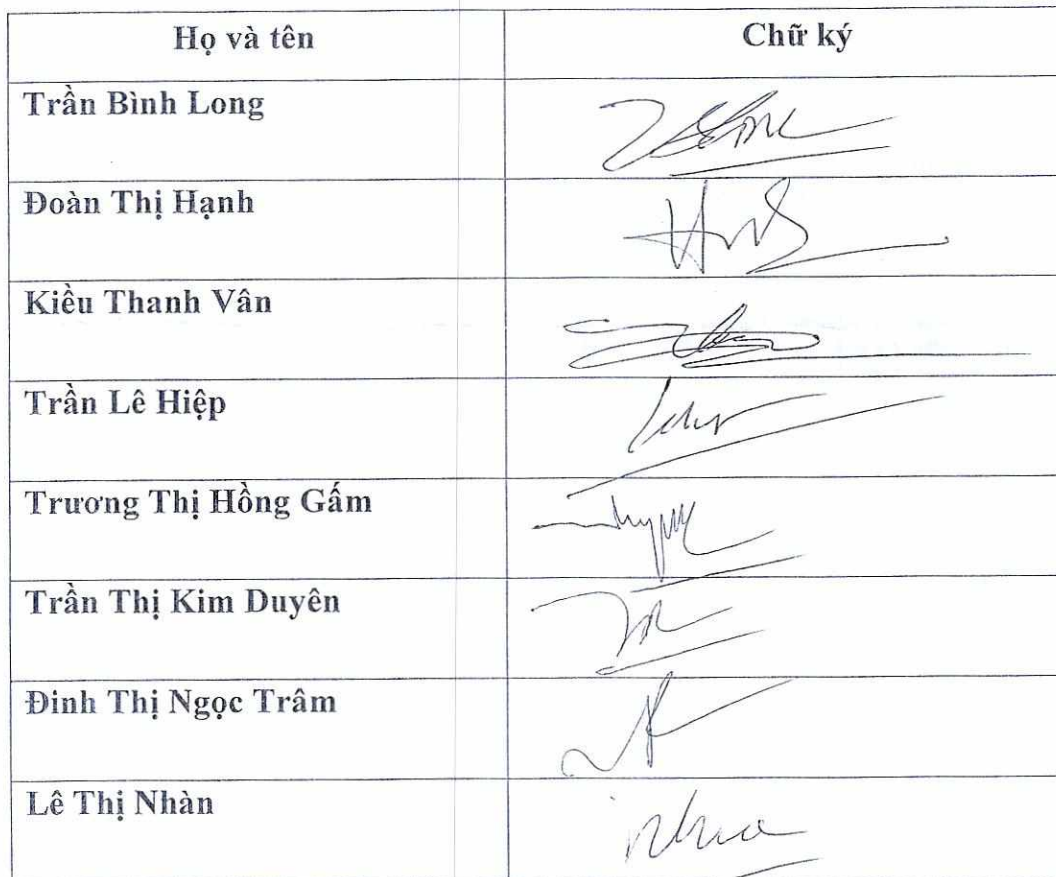 Họ và tên Chữ ký
Trần Bình Long
Đoàn Thị Hạnh
Kiều Thanh Vân
Trần Lê Hiệp
Trương Thị Hồng Gấm
Trần Thị Kim Duyên
Đinh Thị Ngọc Trâm
Lê Thị Nhàn